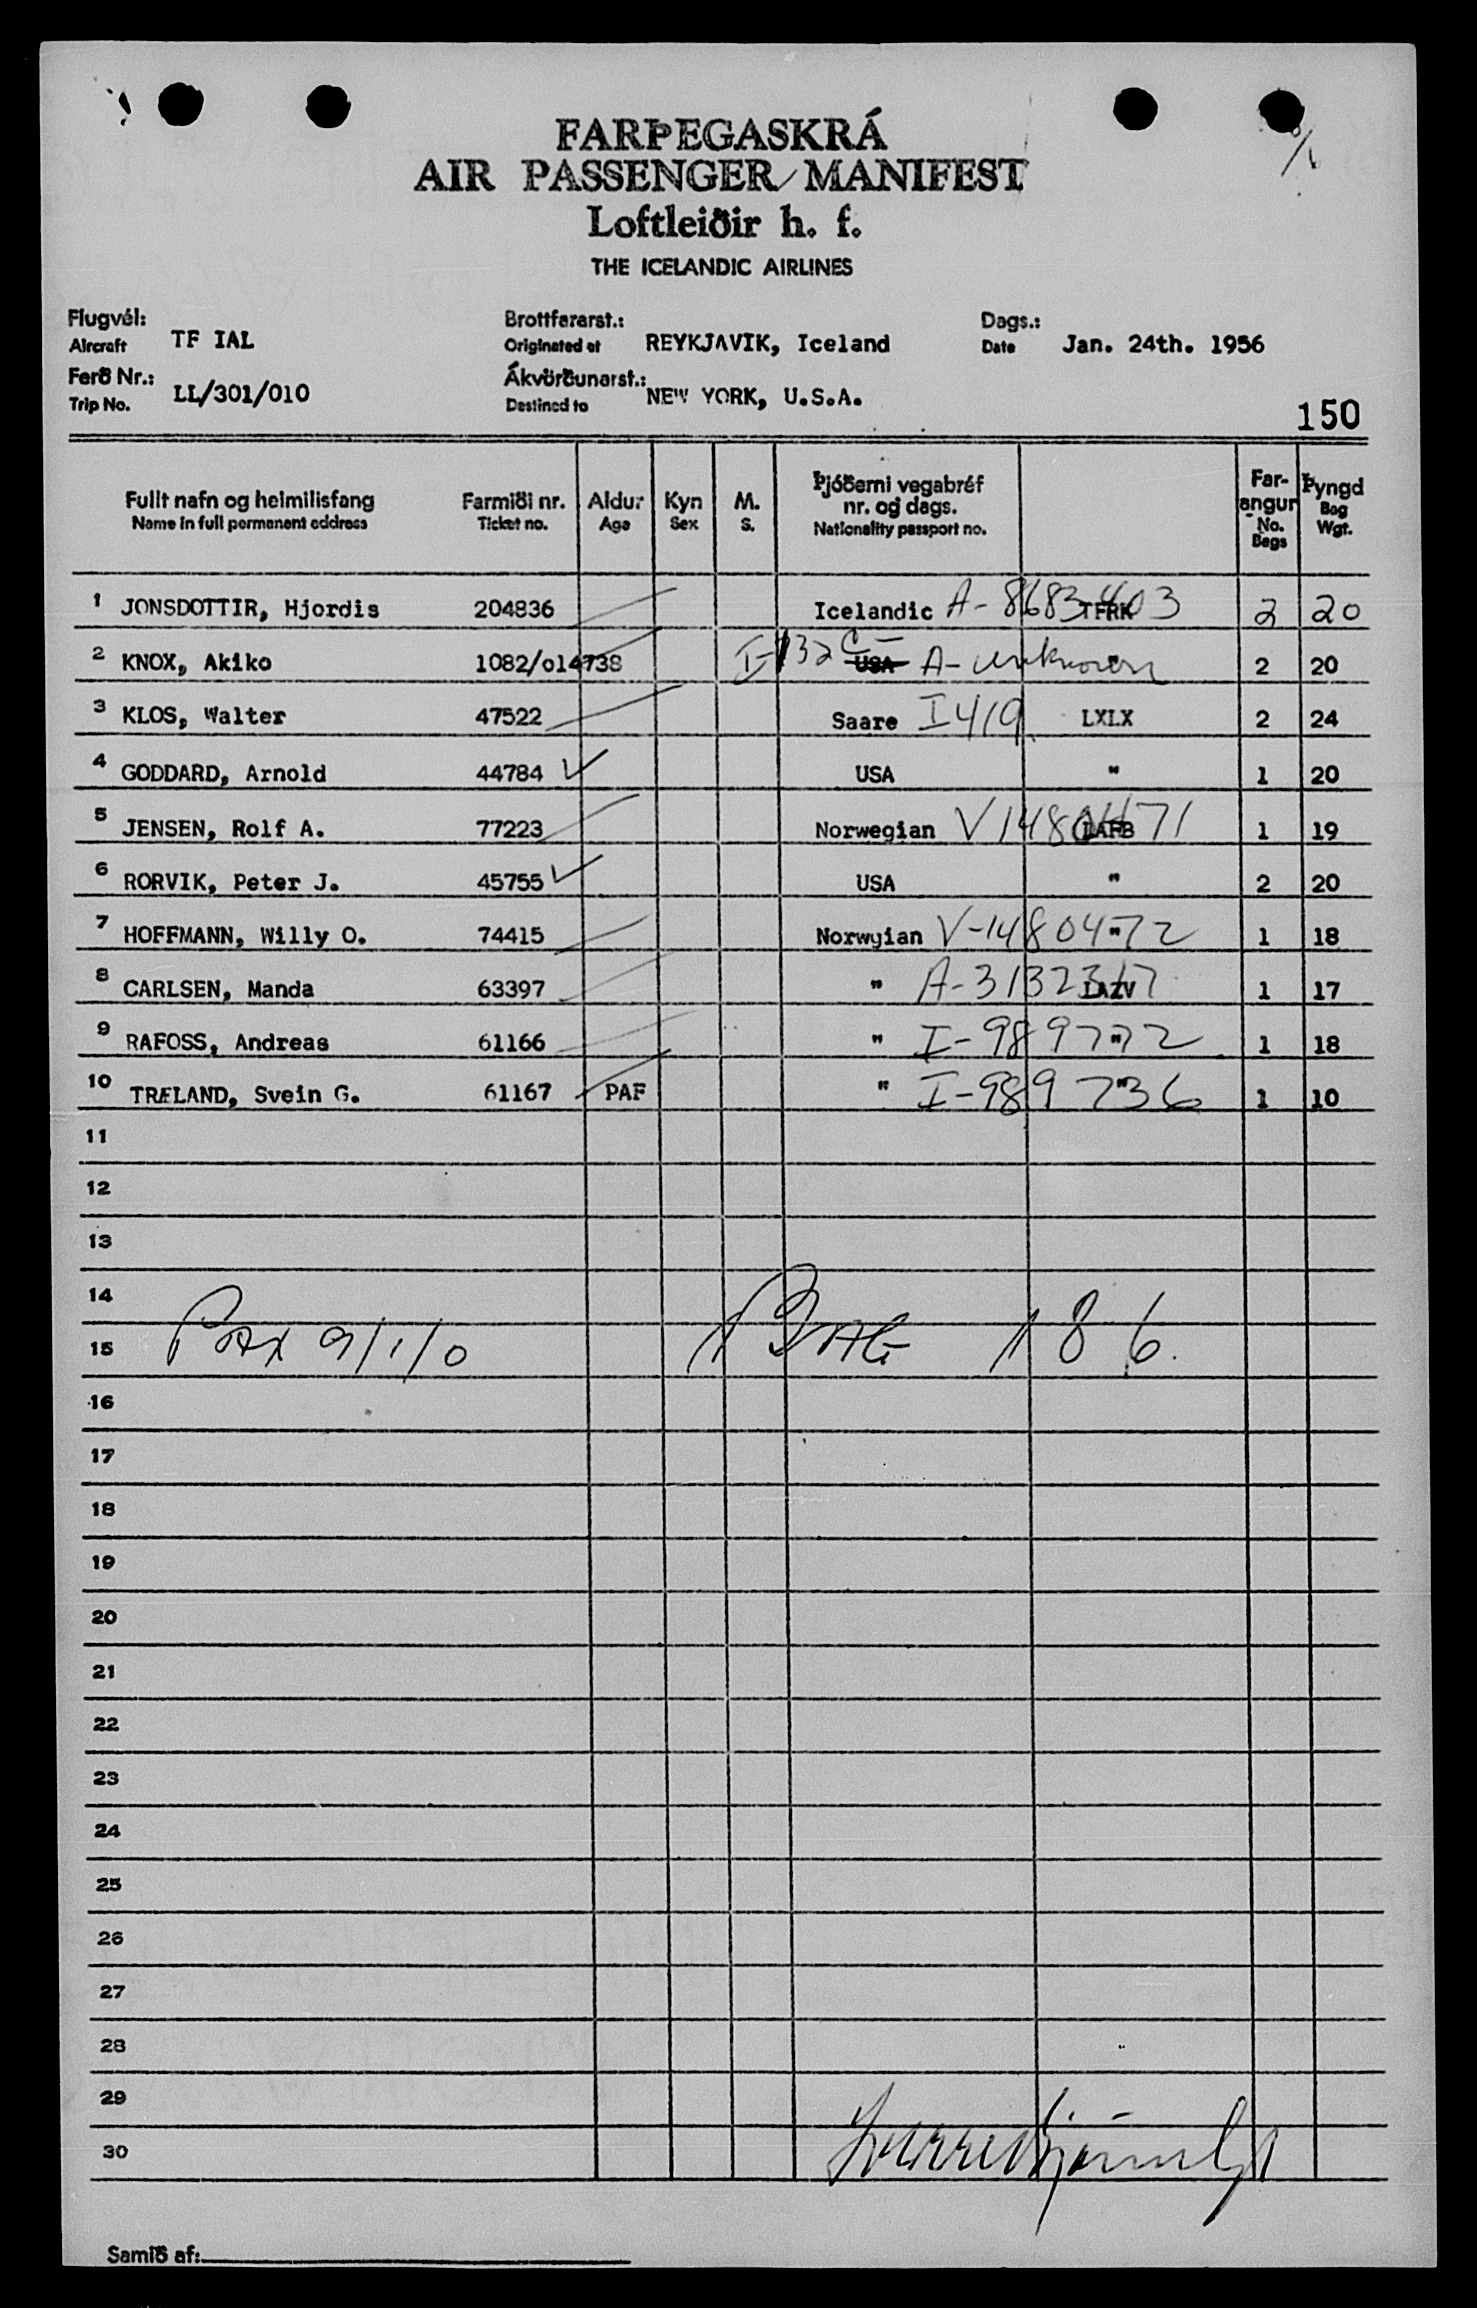 FARÞEGASKRÁ
AIR PASSENGER MANIFEST
Loftleiðir h. f.
THE ICELANDIC AIRLINES
Flugvél: Brottfararst.: Dags.:
Aircraft TF IAL Originated at REYKJAVIK, Iceland Date Jan. 24th. 1956
Ferð Nr.: Ákvörðunarst.:
Trip No. LL/301/010 Destined to NEW YORK, U.S.A.
150
Fullt nafn og heimilisfang Farmiði nr. Aldur Kyn M. Þjóðerni vegabréf nr. og dags. Far-angur Þyngd
Name in full permanent address Ticket no. Age Sex S. Nationality passport no. No. Bags Bag Wgt.
1 JONSDOTTIR, Hjordis 204836 Icelandic A-8683403 TFRK 2 20
2 KNOX, Akiko 1082/014738 I-132 C USA A-unknown " 2 20
3 KLOS, Walter 47522 Saare I419 LXLX 2 24
4 GODDARD, Arnold 44784 USA " 1 20
5 JENSEN, Rolf A. 77223 Norwegian V1480471 LAFB 1 19
6 RORVIK, Peter J. 45755 USA " 2 20
7 HOFFMANN, Willy O. 74415 Norwyian V-1480472 " 1 18
8 CARLSEN, Manda 63397 " A-3132317 LAZV 1 17
9 RAFOSS, Andreas 61166 " I-989772 " 1 18
10 TRÆLAND, Svein G. 61167 PAF " I-989736 " 1 10
11
12
13
14
15 Pax 9/1/0 BAG 186.
16
17
18
19
20
21
22
23
24
25
26
27
28
29
30
Samið af: